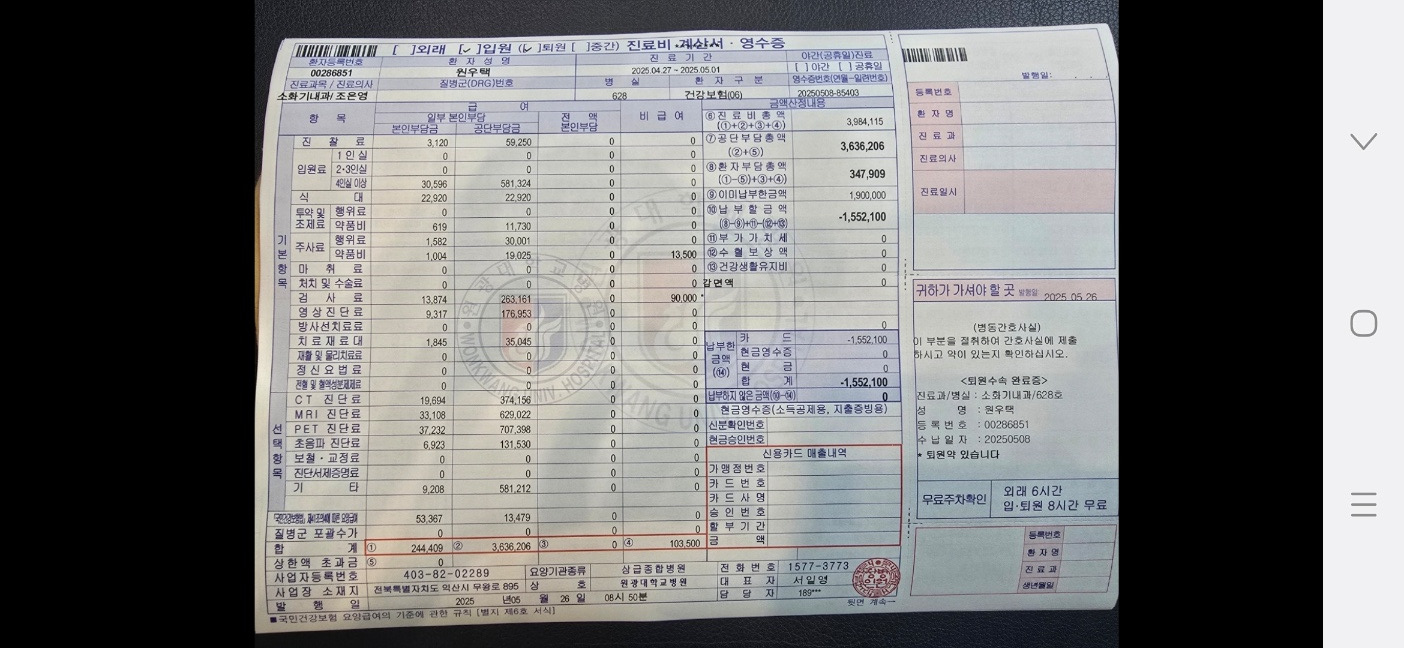 [ ]외래 [✓]입원 (✓]퇴원 [ ]중간) 진료비 계산서 · 영수증
환자등록번호 환 자 성 명 진 료 기 간 야간(공휴일)진료
00286851 원우택 2025.04.27 ~ 2025.05.01 [ ] 야간 [ ] 공휴일
진료과목 / 진료의사 질병군(DRG)번호 병 실 환 자 구 분 영수증번호(연월-일련번호)
소화기내과/ 조은영 628 건강보험(06) 20250508-85403
항 목 급 여 비 급 여 금액산정내용
일부 본인부담 전 액 본인부담
본인부담금 공단부담금
기본항목
진 찰 료 3,120 59,250 0 0
입원료 1인실 0 0 0 0
2·3인실 0 0 0 0
4인실 이상 30,596 581,324 0 0
식 대 22,920 22,920 0 0
투약 및 조제료 행위료 0 0 0 0
약품비 619 11,730 0 0
주사료 행위료 1,582 30,001 0 0
약품비 1,004 19,025 0 13,500
마 취 료 0 0 0 0
처치 및 수술료 0 0 0 0
검 사 료 13,874 263,161 0 90,000 *
영상진단료 9,317 176,953 0 0
방사선치료료 0 0 0 0
치료재료대 1,845 35,045 0 0
재활 및 물리치료료 0 0 0 0
정신요법료 0 0 0 0
전혈 및 혈액성분제제료 0 0 0 0
선택항목
CT 진단료 19,694 374,156 0 0
MRI 진단료 33,108 629,022 0 0
PET 진단료 37,232 707,398 0 0
초음파 진단료 6,923 131,530 0 0
보철·교정료 0 0 0 0
진단서제증명료 0 0 0 0
기 타 9,208 581,212 0 0
53,367 13,479 0 0
질병군 포괄수가 0 0 0 0
합 계 ① 244,409 ② 3,636,206 ③ 0 ④ 103,500
상한액 초과금 ⑤ 0
사업자등록번호 403-82-02289 요양기관종류 상급종합병원 전 화 번 호 1577-3773
사업장 소재지 전북특별자치도 익산시 무왕로 895 상 호 원광대학교병원 대 표 자 서일영
발 행 일 2025 년05 월 26 일 08시 50분 담 당 자 189***
뒷면 계속→
■국민건강보험 요양급여의 기준에 관한 규칙 [별지 제6호 서식]
⑥진료비총액 (①+②+③+④) 3,984,115
⑦공단부담총액 (②+⑤) 3,636,206
⑧환자부담총액 (①-⑤)+③+④) 347,909
⑨이미납부한금액 1,900,000
⑩납부할금액 (⑧-⑨)+⑪-(⑫+⑬) -1,552,100
⑪부가가치세 0
⑫수혈보상액 0
⑬건강생활유지비 0
감면액 0
0
납부한 금액 (⑭) 카 드 -1,552,100
현금영수증 0
현 금 0
합 계 -1,552,100
납부하지 않은 금액(⑩-⑭) 0
현금영수증(소득공제용, 지출증빙용)
신분확인번호
현금승인번호
신용카드 매출내역
가맹점번호
카드번호
카드사명
승인번호
할부기간
금 액
원광대학교병원
WONKWANG UNIV. HOSPITAL
발행일: . .
등록번호
환 자 명
진 료 과
진료의사
진료일시
귀하가 가셔야 할 곳 발행일: 2025.05.26
(병동간호사실)
이 부분을 절취하여 간호사실에 제출
하시고 약이 있는지 확인하십시오.
<퇴원수속 완료증>
진료과/병실 : 소화기내과/628호
성 명 : 원우택
등 록 번 호 : 00286851
수 납 일 자 : 20250508
* 퇴원약 있습니다
무료주차확인 외래 6시간
입·퇴원 8시간 무료
등록번호
환 자 명
진 료 과
생년월일